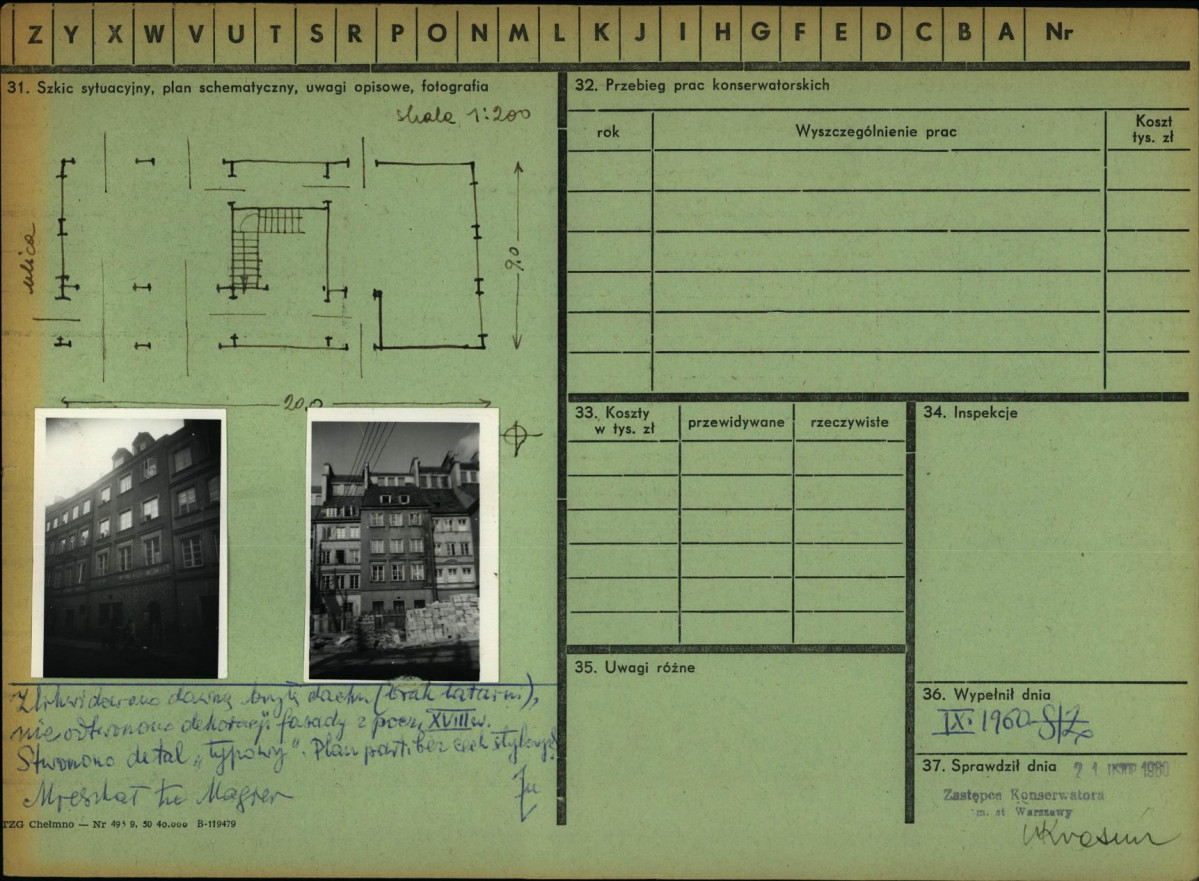 Z Y X W V U T S R P O N M L K J I H G F E D C B A Nr
31. Szkic sytuacyjny, plan schematyczny, uwagi opisowe, fotografia
skala 1:200
ulica
9.0
20,0
Zlikwidowano dawną bryłę dachu (brak latarni),
nie odtworzono dekoracji fasady z pocz. XVIII w.
Stworzono detal "typowy". Plan parti bez cech stylowych
Mieszkał tu Magier
TZG Chełmno — Nr 495 9. 50 40.000 B-119479
32. Przebieg prac konserwatorskich
rok Wyszczególnienie prac Koszt
tys. zł
33. Koszty
w tys. zł przewidywane rzeczywiste
34. Inspekcje
35. Uwagi różne
36. Wypełnił dnia
IX 1960
37. Sprawdził dnia 21 1960
Zastępca Konserwatora
m. st Warszawy